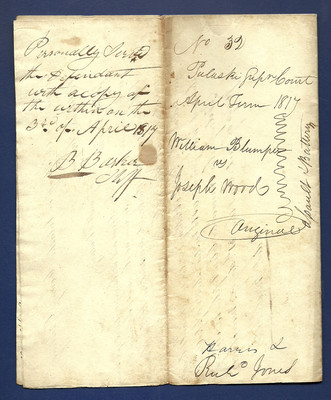 Personally Served
the Defendant
with a copy of
the within on the
3rd of April 1817
B. B
Shff
No 32
Pulaski Supr Court
April Term 1817
William Blumper
vs
Joseph Wood
Assault Battery
Original
Harris &
Richd Jones